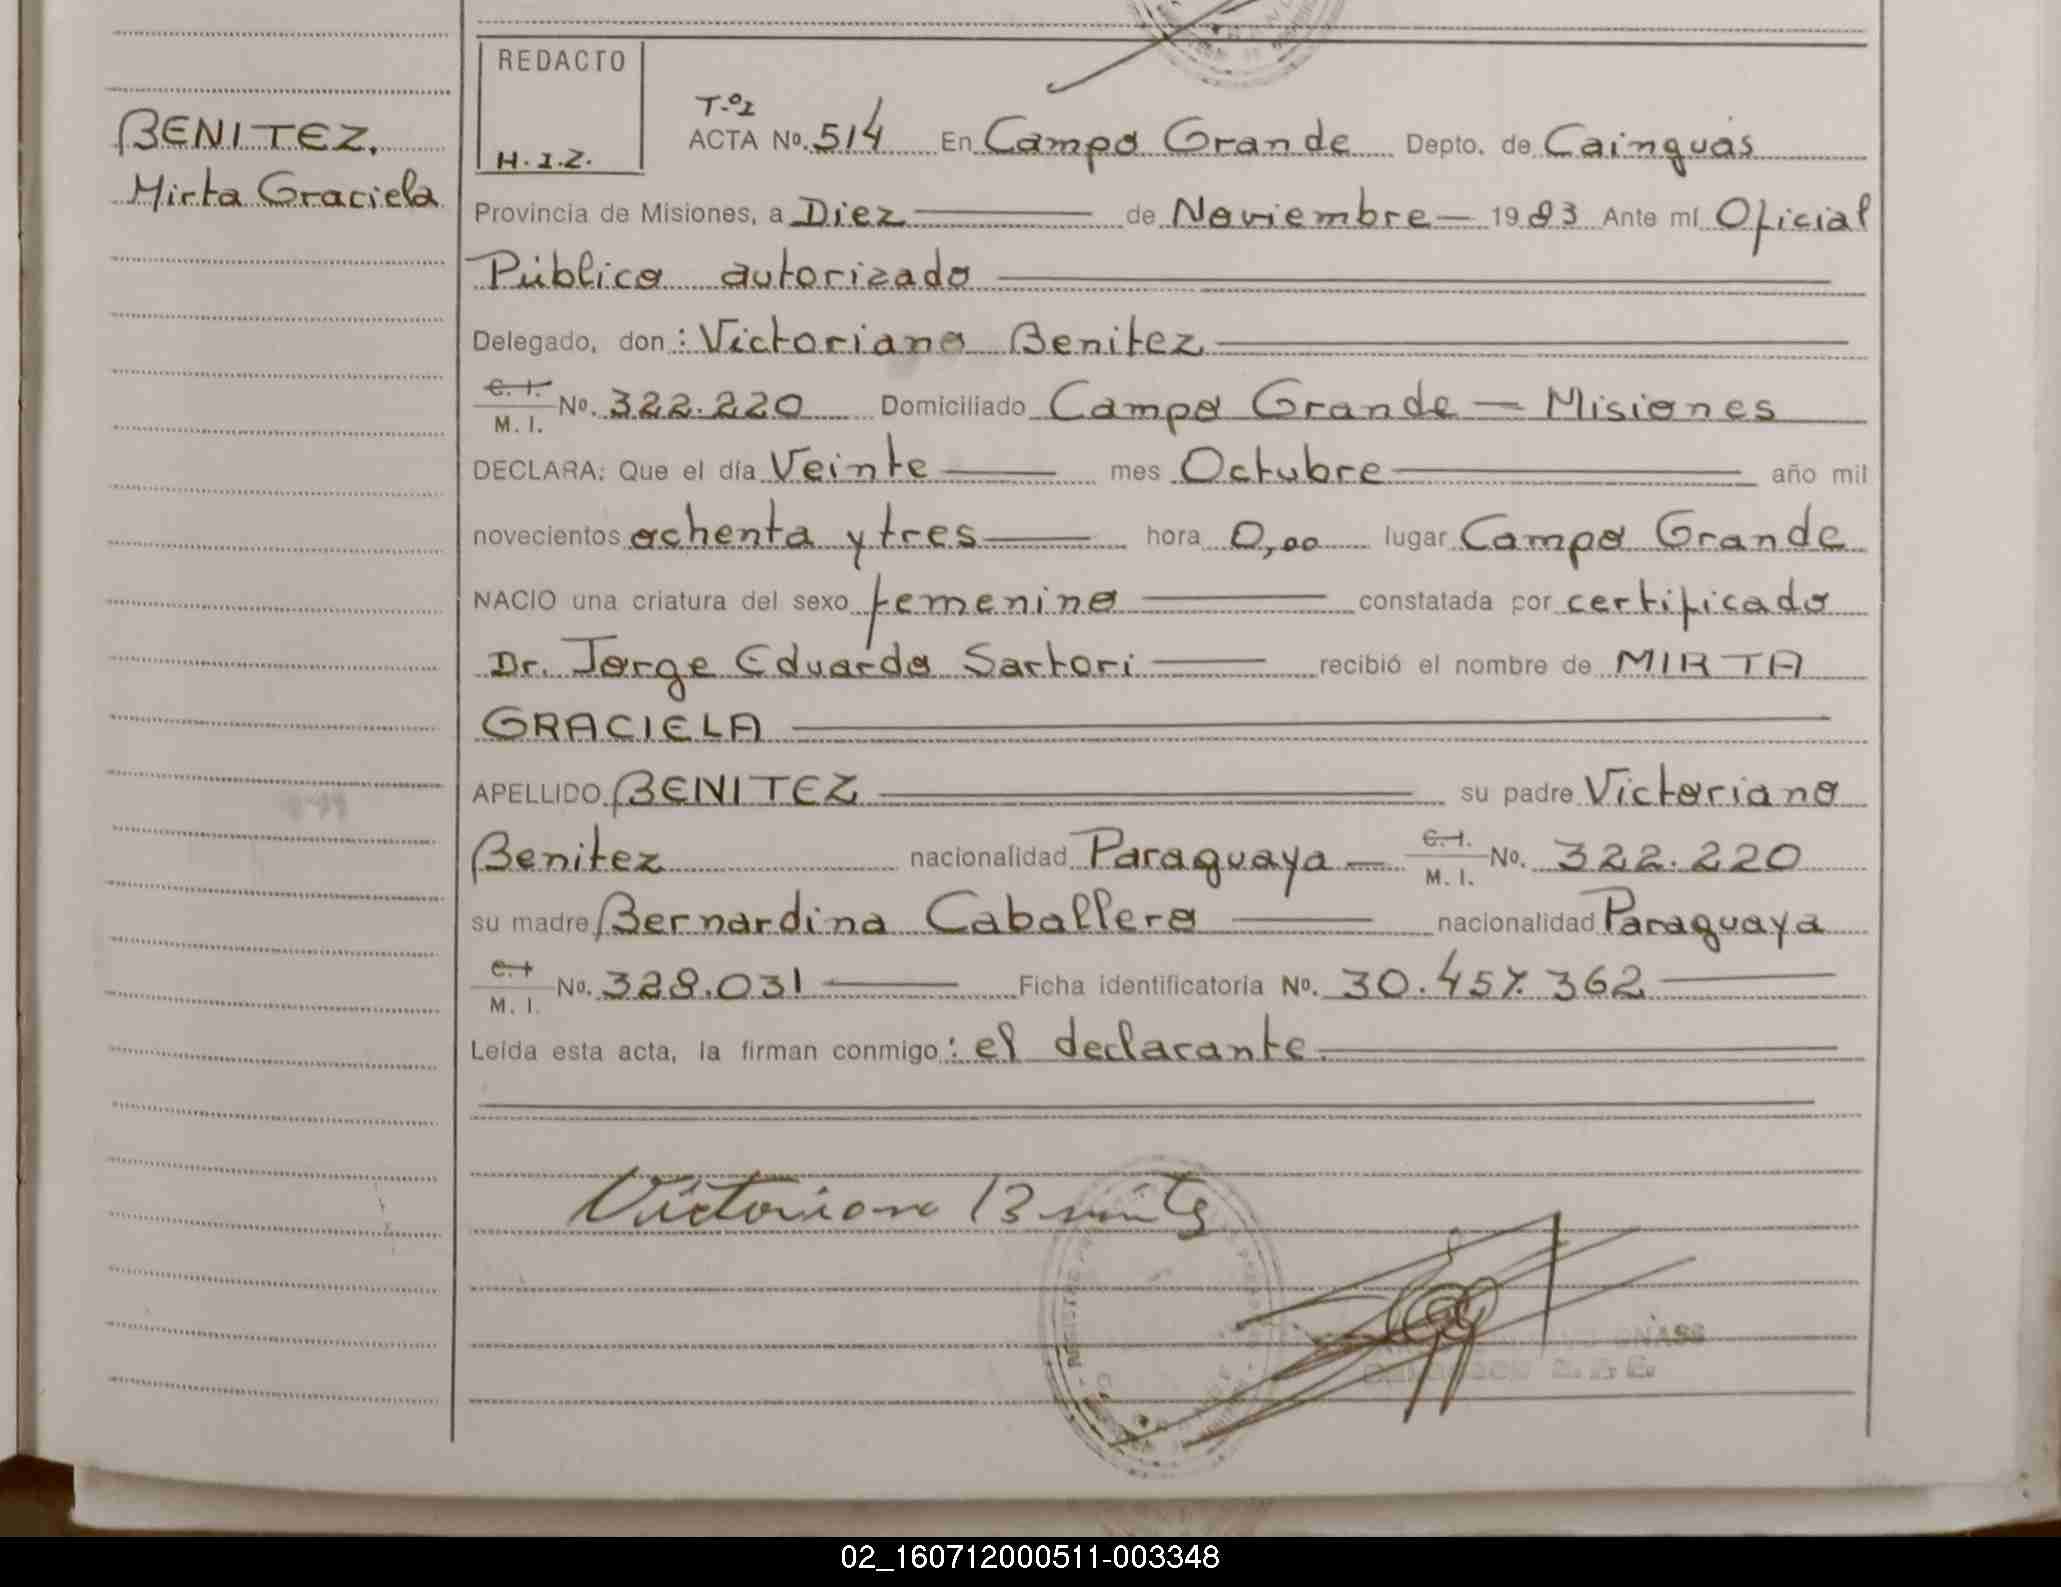 BENITEZ.
Mirta Graciela
REDACTO
H.I.Z.
T.º2
ACTA Nº. 514 En Campo Grande Depto. de Cainguás
Provincia de Misiones, a Diez de Noviembre 1983 Ante mí Oficial
Público autorizado
Delegado, don: Victoriano Benitez
C. I.
M. I. Nº. 322.220 Domiciliado Campo Grande — Misiones
DECLARA: Que el día Veinte mes Octubre año mil
novecientos ochenta y tres hora 0,00 lugar Campo Grande
NACIO una criatura del sexo femenino constatada por certificado
Dr. Jorge Eduardo Sartori recibió el nombre de MIRTA
GRACIELA
APELLIDO BENITEZ su padre Victoriano
Benitez nacionalidad Paraguaya — C. I.
M. I. Nº. 322.220
su madre Bernardina Caballero nacionalidad Paraguaya
C. I.
M. I. Nº. 328.031 Ficha identificatoria Nº. 30.457.362
Leída esta acta, la firman conmigo: el declarante.
Victoriano Benitez
02_160712000511-003348